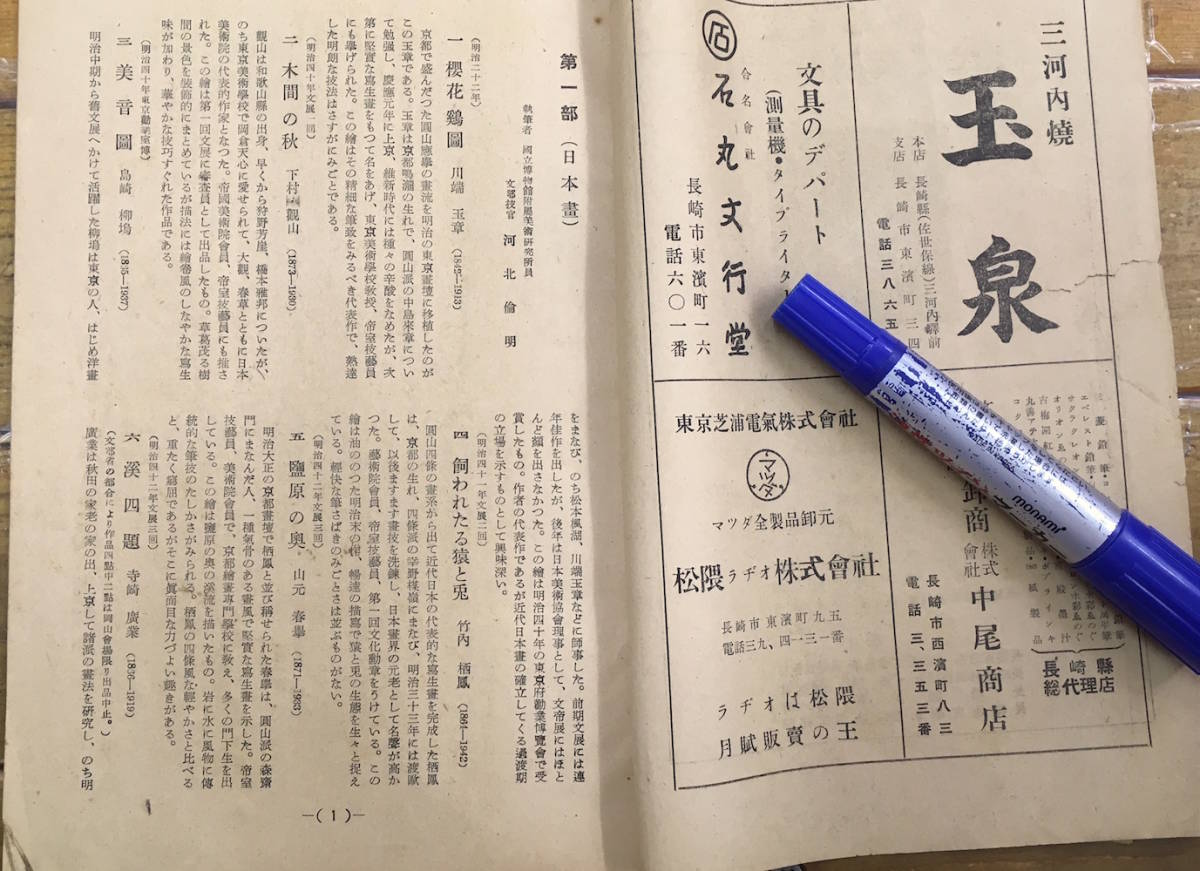 三河內燒
玉泉
本店 長崎縣(佐世保線)三河內驛前
支店 長崎市東濱町三四
電話三八六五
文具のデパート
(測量機•タイプライタ
合名會社
石丸文行堂
長崎市東濱町一六
電話六〇一番
三菱鉛筆
エベレスト鉛筆
サクラクレオン
オリオンゑのぐ
古梅園紅
長崎縣
総代理店
株式會社
中尾商店
長崎市西濱町八三
電話三、三五三番
東京芝浦電氣株式會社
マツダ
マツダ全製品卸元
松隈ラヂオ株式會社
長崎市東濱町九五
電話三九、四一三一番
ラヂオは松隈
月賦販賣の王
monami
第一部(日本畫)
執筆者 國立博物館附屬美術硏究所員
文部技官 河北倫明
(明治二十二年)
一 櫻花鷄圖 川端玉章(1842—1913)
京都で盛んだつた圓山應擧の畫流を明治の東京畫壇に移植したのが
この玉章である。玉章は京都鳴瀧の生れで、圓山派の中島來章につい
て勉强し、慶應元年に上京、維新時代には種々の辛酸をなめたが、次
第に堅實な寫生畫をもつて名をあげ、東京美術學校敎授、帝室技藝員
にも擧げられた。この繪はその精細な筆致をみるべき代表作で、熟達
した明朗な技法はさすがにみごとである。
(明治四十年文展一回)
二 木間の秋 下村觀山(1873—1930)
觀山は和歌山縣の出身、早くから狩野芳崖、橋本雅邦についたが、
のち東京美術學校で岡倉天心に愛せられて、大觀、春草とともに日本
美術院の代表的作家となつた。帝國美術院會員、帝室技藝員にも推さ
れた。この繪は第一回文展に審査員として出品したもの。草葛茂る樹
間の景色を裝飾的にまとめているが描法には繪卷風のしなやかな寫生
味が加わり、華やかな技巧すぐれた作品である。
(明治四十年東京勸業博)
三 美音圖 島崎柳塢(1865—1937)
明治中期から舊文展へかけて活躍した柳塢は東京の人、はじめ洋畫
をまなび、のち松本楓湖、川端玉章などに師事した。前期文展には連
年佳作を出したが、後年は日本美術協會理事として、文帝展にはほと
んど顏を出さなかつた。この繪は明治四十年の東京府勸業博覽會で受
賞したもの。作者の代表作であるが近代日本畫の確立してくる過渡期
の立場を示すものとして興味深い。
(明治四十一年文展二回)
四 飼われたる猿と兎 竹內栖鳳(1864—1942)
圓山四條の畫系から出て近代日本の代表的な寫生畫を完成した栖鳳
は、京都の生れ、四條派の幸野楳嶺にまなび、明治三十三年には渡歐
して、以後ますます畫技を洗鍊し、日本畫界の元老として名聲が高か
つた。藝術院會員、帝室技藝員、第一回文化勳章をうけている。この
繪は油ののつた明治末の作、暢達の描寫で猿と兎の生態を生々と捉え
ている。輕快な筆さばきのみごとさは並ぶものがない。
(明治四十二年文展三回)
五 鹽原の奧 山元春擧(1871—1933)
明治大正の京都畫壇で栖鳳と並び稱せられた春擧は、圓山派の森齋
門にまなんだ人、一種氣骨のある畫風で堅實な寫生畫を示した。帝室
技藝員、美術院會員で、京都繪畫專門學校に敎え、多くの門下生を出
している。この繪は鹽原の奧の溪流を描いたもの。岩に水に風物に傳
統的な筆技のたしかさがみられる。栖鳳の四條風な輕やかさと比べる
と、重たく窮屈であるがそこに眞面目な力づよい趣きがある。
(明治四十二年文展三回)
六 溪四題 寺崎廣業(1866—1919)
(文部省の都合により作品四點中二點は岡山會場限り出品中止。)
廣業は秋田の家老の家の出、上京して諸派の畫法を硏究し、のち明
—(1)—